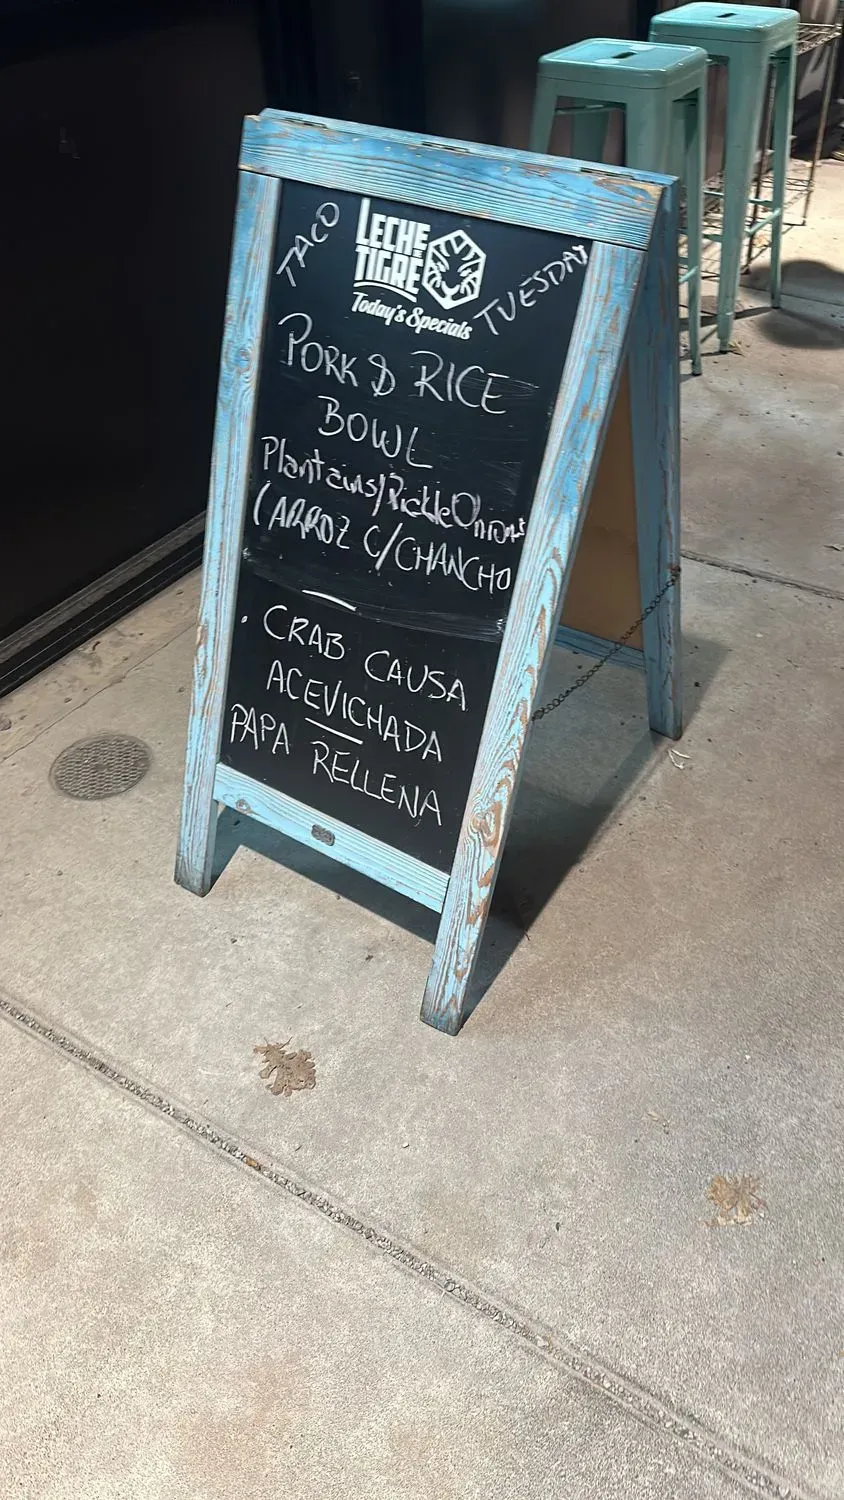 TACO
LECHE
de
TIGRE
TUESDAY
Today's Specials
PORK & RICE
BOWL
Plantains/PickleOnions
(ARROZ C/CHANCHO
. CRAB CAUSA
ACEVICHADA
PAPA RELLENA